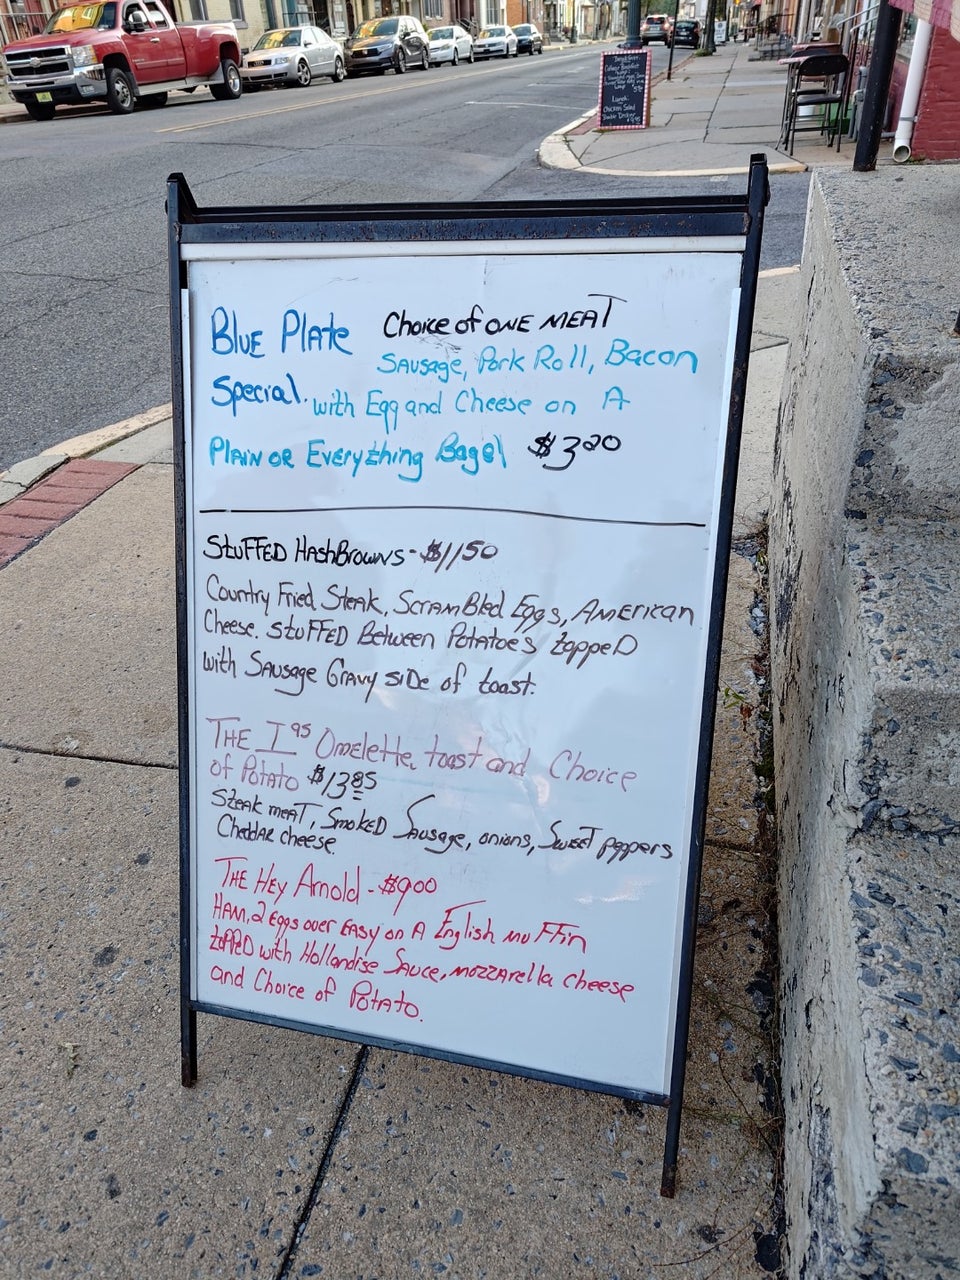 Blue Plate Choice of ONE MEAT
Sausage, Pork Roll, Bacon
Special. with Egg and Cheese on A
Plain or Everything Bagel $3.20
Stuffed HashBrowns - $11.50
Country Fried Steak, Scrambled Eggs, American
Cheese. Stuffed Between Potatoe's topped
with Sausage Gravy side of toast.
THE I 95 Omelette, toast and Choice
of Potato $13.85
Steak meat, Smoked Sausage, onions, Sweet peppers
Cheddar cheese.
THE Hey Arnold - $9.00
Ham, 2 Eggs over Easy on A English muffin
topped with Hollandise Sauce, mozzarella cheese
and Choice of Potato.
Breakfast
Lunch:
Chicken Salad